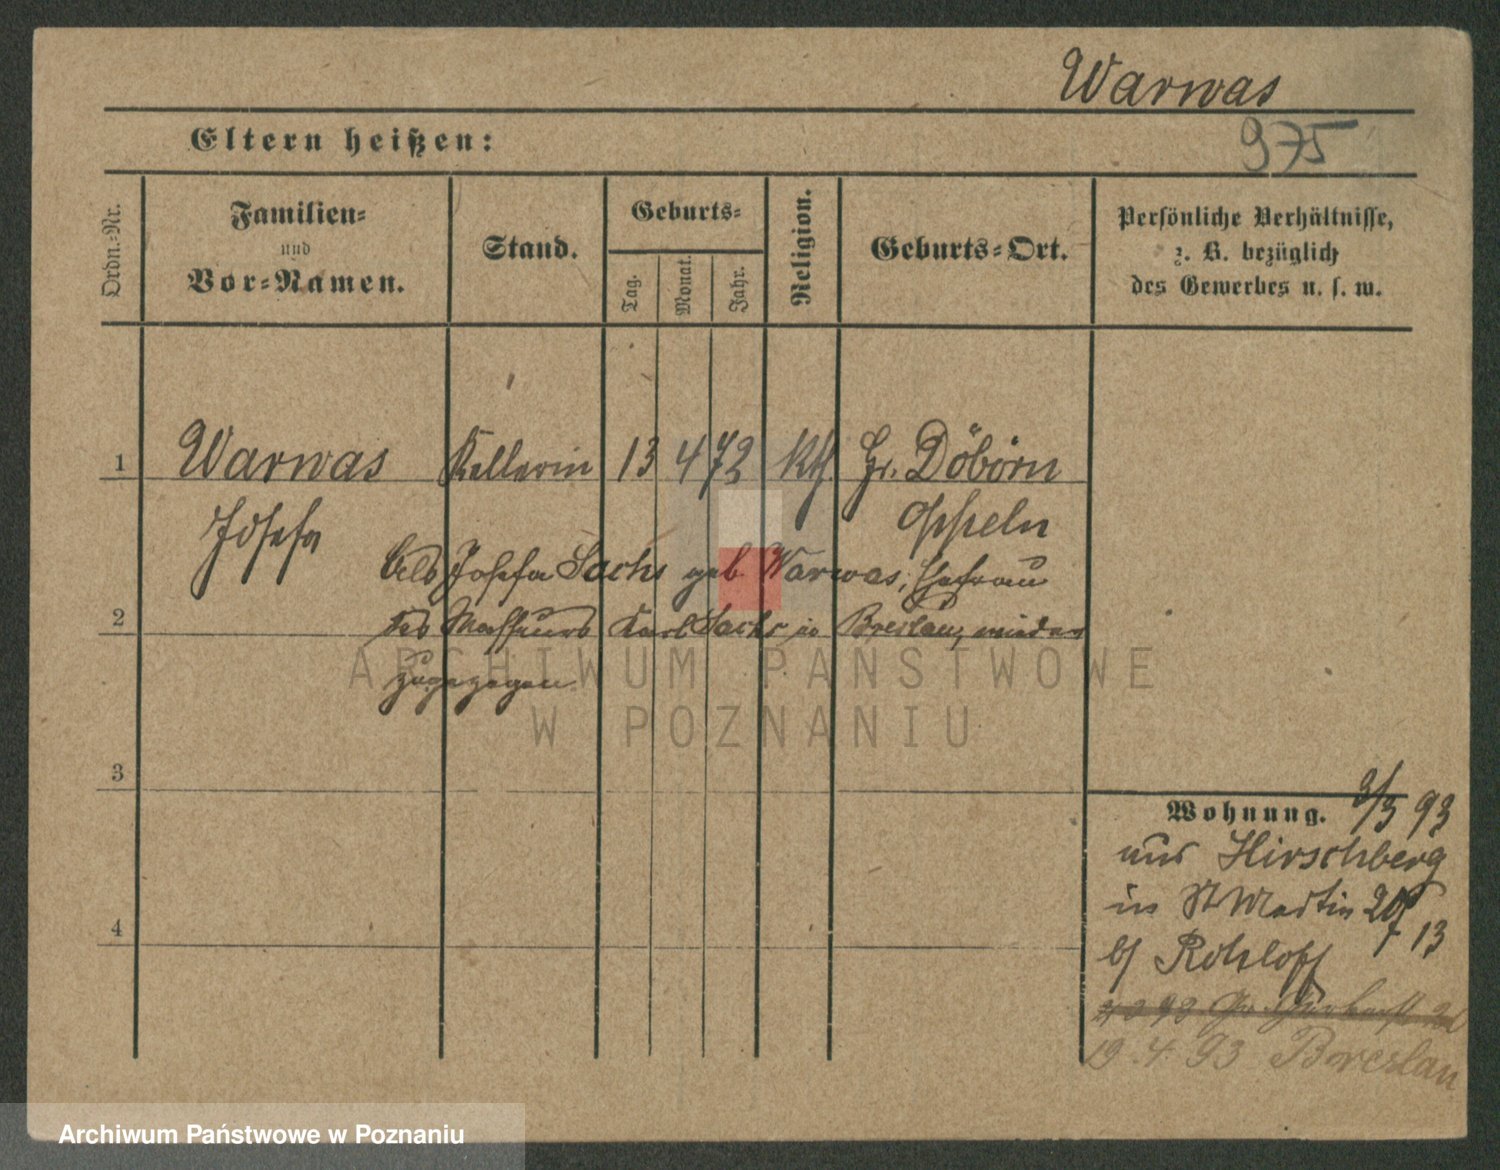 Warwas
975
Eltern heißen:
Ordn.-Nr.
Familien-
und
Vor-Namen.
Stand.
Geburts-
Tag.
Monat.
Jahr.
Religion.
Geburts-Ort.
Persönliche Verhältnisse,
z. B. bezüglich
des Gewerbes u. s. w.
1 Warwas Kellnerin 13 4 72 Kth. Gr. Döbörn
Josefa Oppeln
Als Josefa Sachs geb. Warwas, Ehefrau
des Masseurs Karl Sachs in Breslau, wieder
2
zugezogen.
3
4
Wohnung. 3/3 93
aus Hirschberg
in St Martin 20/
13
b/ Rohloff
19.4.93 Breslau
ARCHIWUM PAŃSTWOWE
W POZNANIU
Archiwum Państwowe w Poznaniu